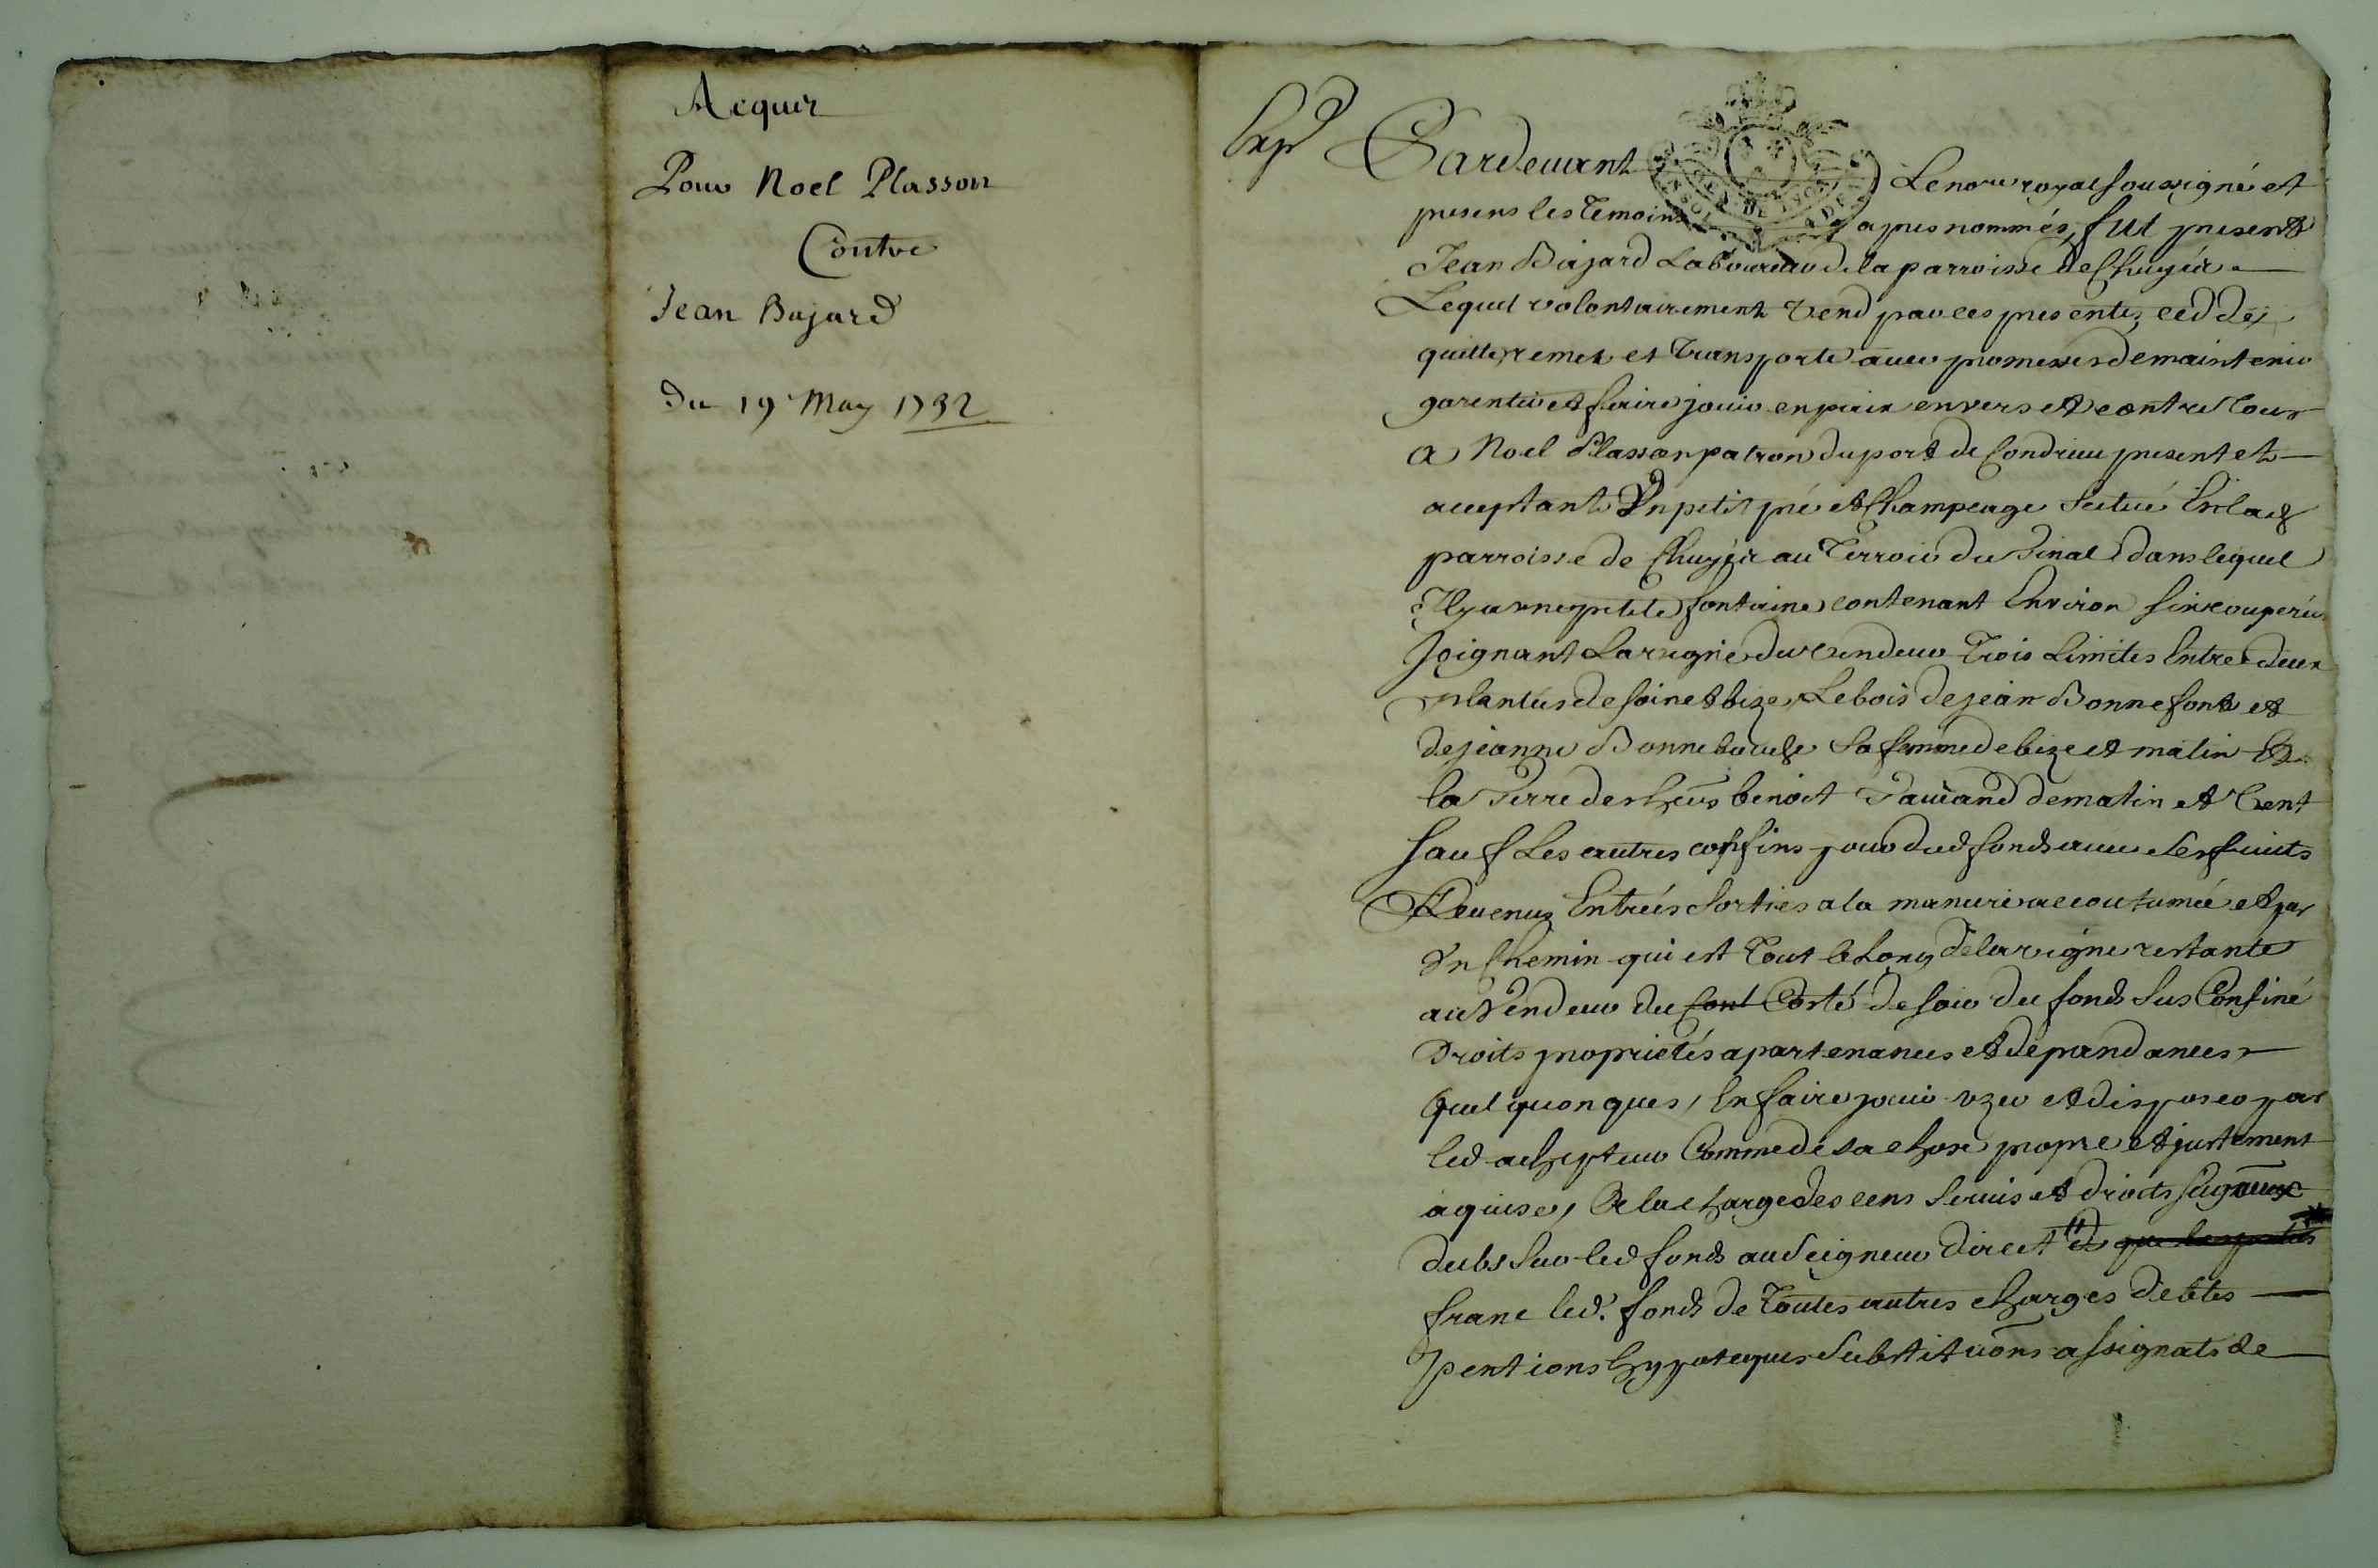 Acquis
Pour Noel Plasson
Contre
Jean Bajard
Du 19 May 1732
Exp
Pardevant Le no.re royal soussigné et
presens les temoins apres nommés, fut present
Jean Bajard Laboureur de la parroisse de Chuyéir
Lequel volontairement vend par ces presentes, ced de,
quitte, remet et transporte avec promesses de maintenir
garentir et faire jouir en paix envers et contre tous
a Noel Plasson patron du port de Condrieu present et
acceptant Un petit pré et Champeage scitué En lad
parroisse de Chuyéir au Terroir du Pinal dans lequel
Il y a une petite fontaine contenant Environ six couperée
Joignant La vigne du vendeur Trois Limites Entre deux
plantées de soir et bize, Le bois de jean Bonnefont et
de jeanne sa femme de bize et matin Et
la Terre des heirs benoit de matin et vent
sauf Les autres confins dud fonds avec ses fruits
Revenus Entrées sorties a la maniere accoutumée et par
Un Chemin qui est tout le Long de la vigne restante
au Vendeur du cont Costé de soir du fonds sus Confiné
Droits proprietés apartenances et dépandances
Quelquonques, En faire jouir uzer et disposer par
led achepteur Comme de sa chose propre et justement
aquise, A la charge des cens servis et droits seigaux
dubs sur led fonds au Seigneur Direct et que les
franc led. fonds de Toutes autres charges debtes
pentions hypoteques Substituõns assignats de